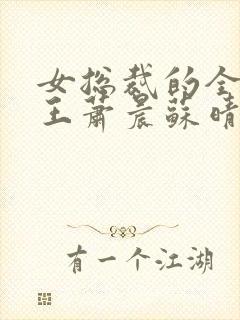 女总裁的全
王萧晨苏晴
有一个江湖